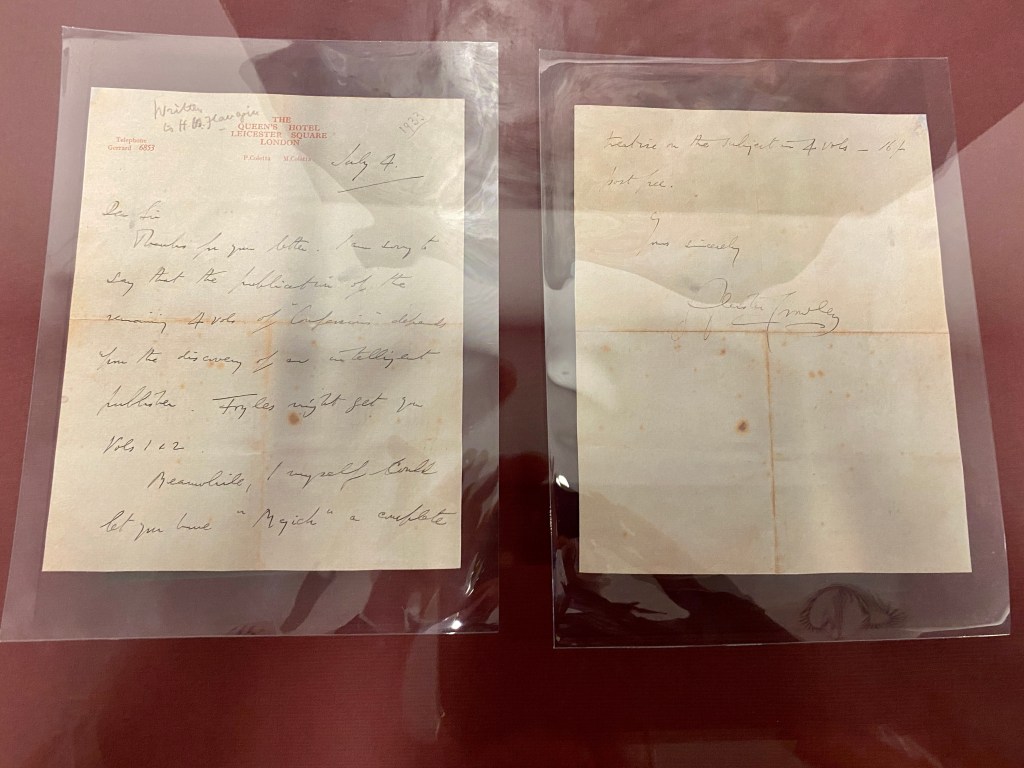 Written
to H.
THE
QUEEN'S HOTEL
LEICESTER SQUARE
LONDON
1933
Telephone
Gerrard 6853
P. Coletta M. Coletta
July 4.
Dear Sir
Thanks for your letter. I am sorry to
say that the publication of the
remaining 4 vols of "Confessions" depends
upon the discovery of an intelligent
publisher. Foyles might get you
Vols 1 & 2
Meanwhile, I myself could
let you have "Magick" a complete
treatise on the subject – 4 vols –
post free.
Yours sincerely
Aleister Crowley